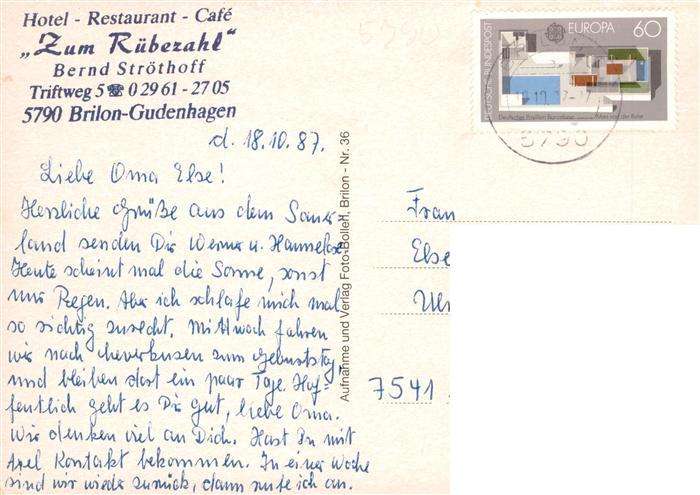 Hotel - Restaurant - Café
„Zum Rübezahl“
Bernd Ströthoff
Triftweg 5 ☎ 0 29 61 - 27 05
5790 Brilon-Gudenhagen
d. 18.10.87.
Liebe Oma Else!
Herzliche Grüße aus dem Sauer
land senden Dir Werner u. Hannelore
Heute scheint mal die Sonne, sonst
nur Regen. Aber ich schlafe mich mal
so richtig zurecht. Mittwoch fahren
wir nach Leverkusen zum Geburtstag,
und bleiben dort ein paar Tage. Hof=
fentlich geht es Dir gut, liebe Oma.
Wir denken viel an Dich. Hast Du mit
Axel Kontakt bekommen. In einer Woche
sind wir wieder zurück, dann rufe ich an.
Aufnahme und Verlag Foto-Bolleh, Brilon - Nr. 36
DEUTSCHE BUNDESPOST
EUROPA 60
Deutscher Pavillon Barcelona
5790
Frau
Else
7541